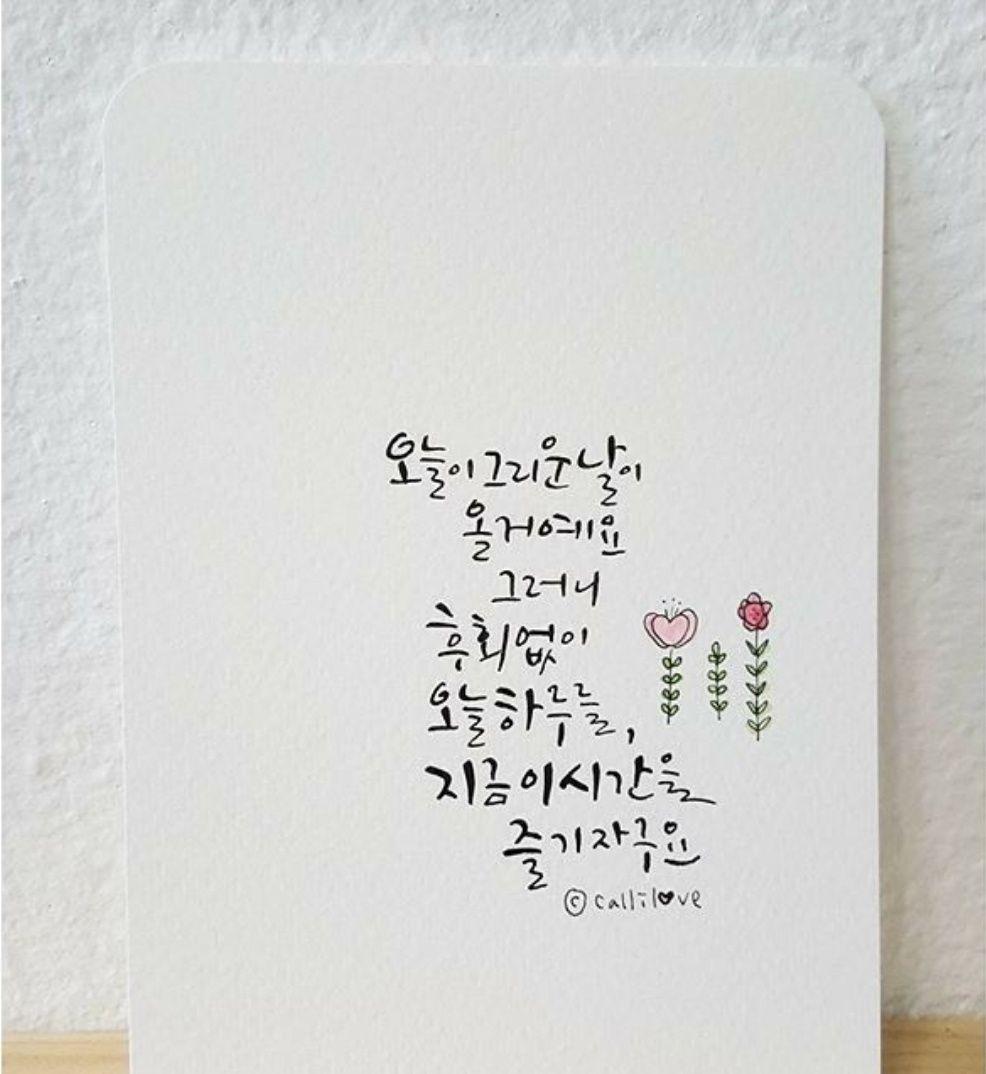 오늘이 그리운 날이
올거예요
그러니
후회없이
오늘 하루를,
지금 이 시간을
즐기자구요
© callilove